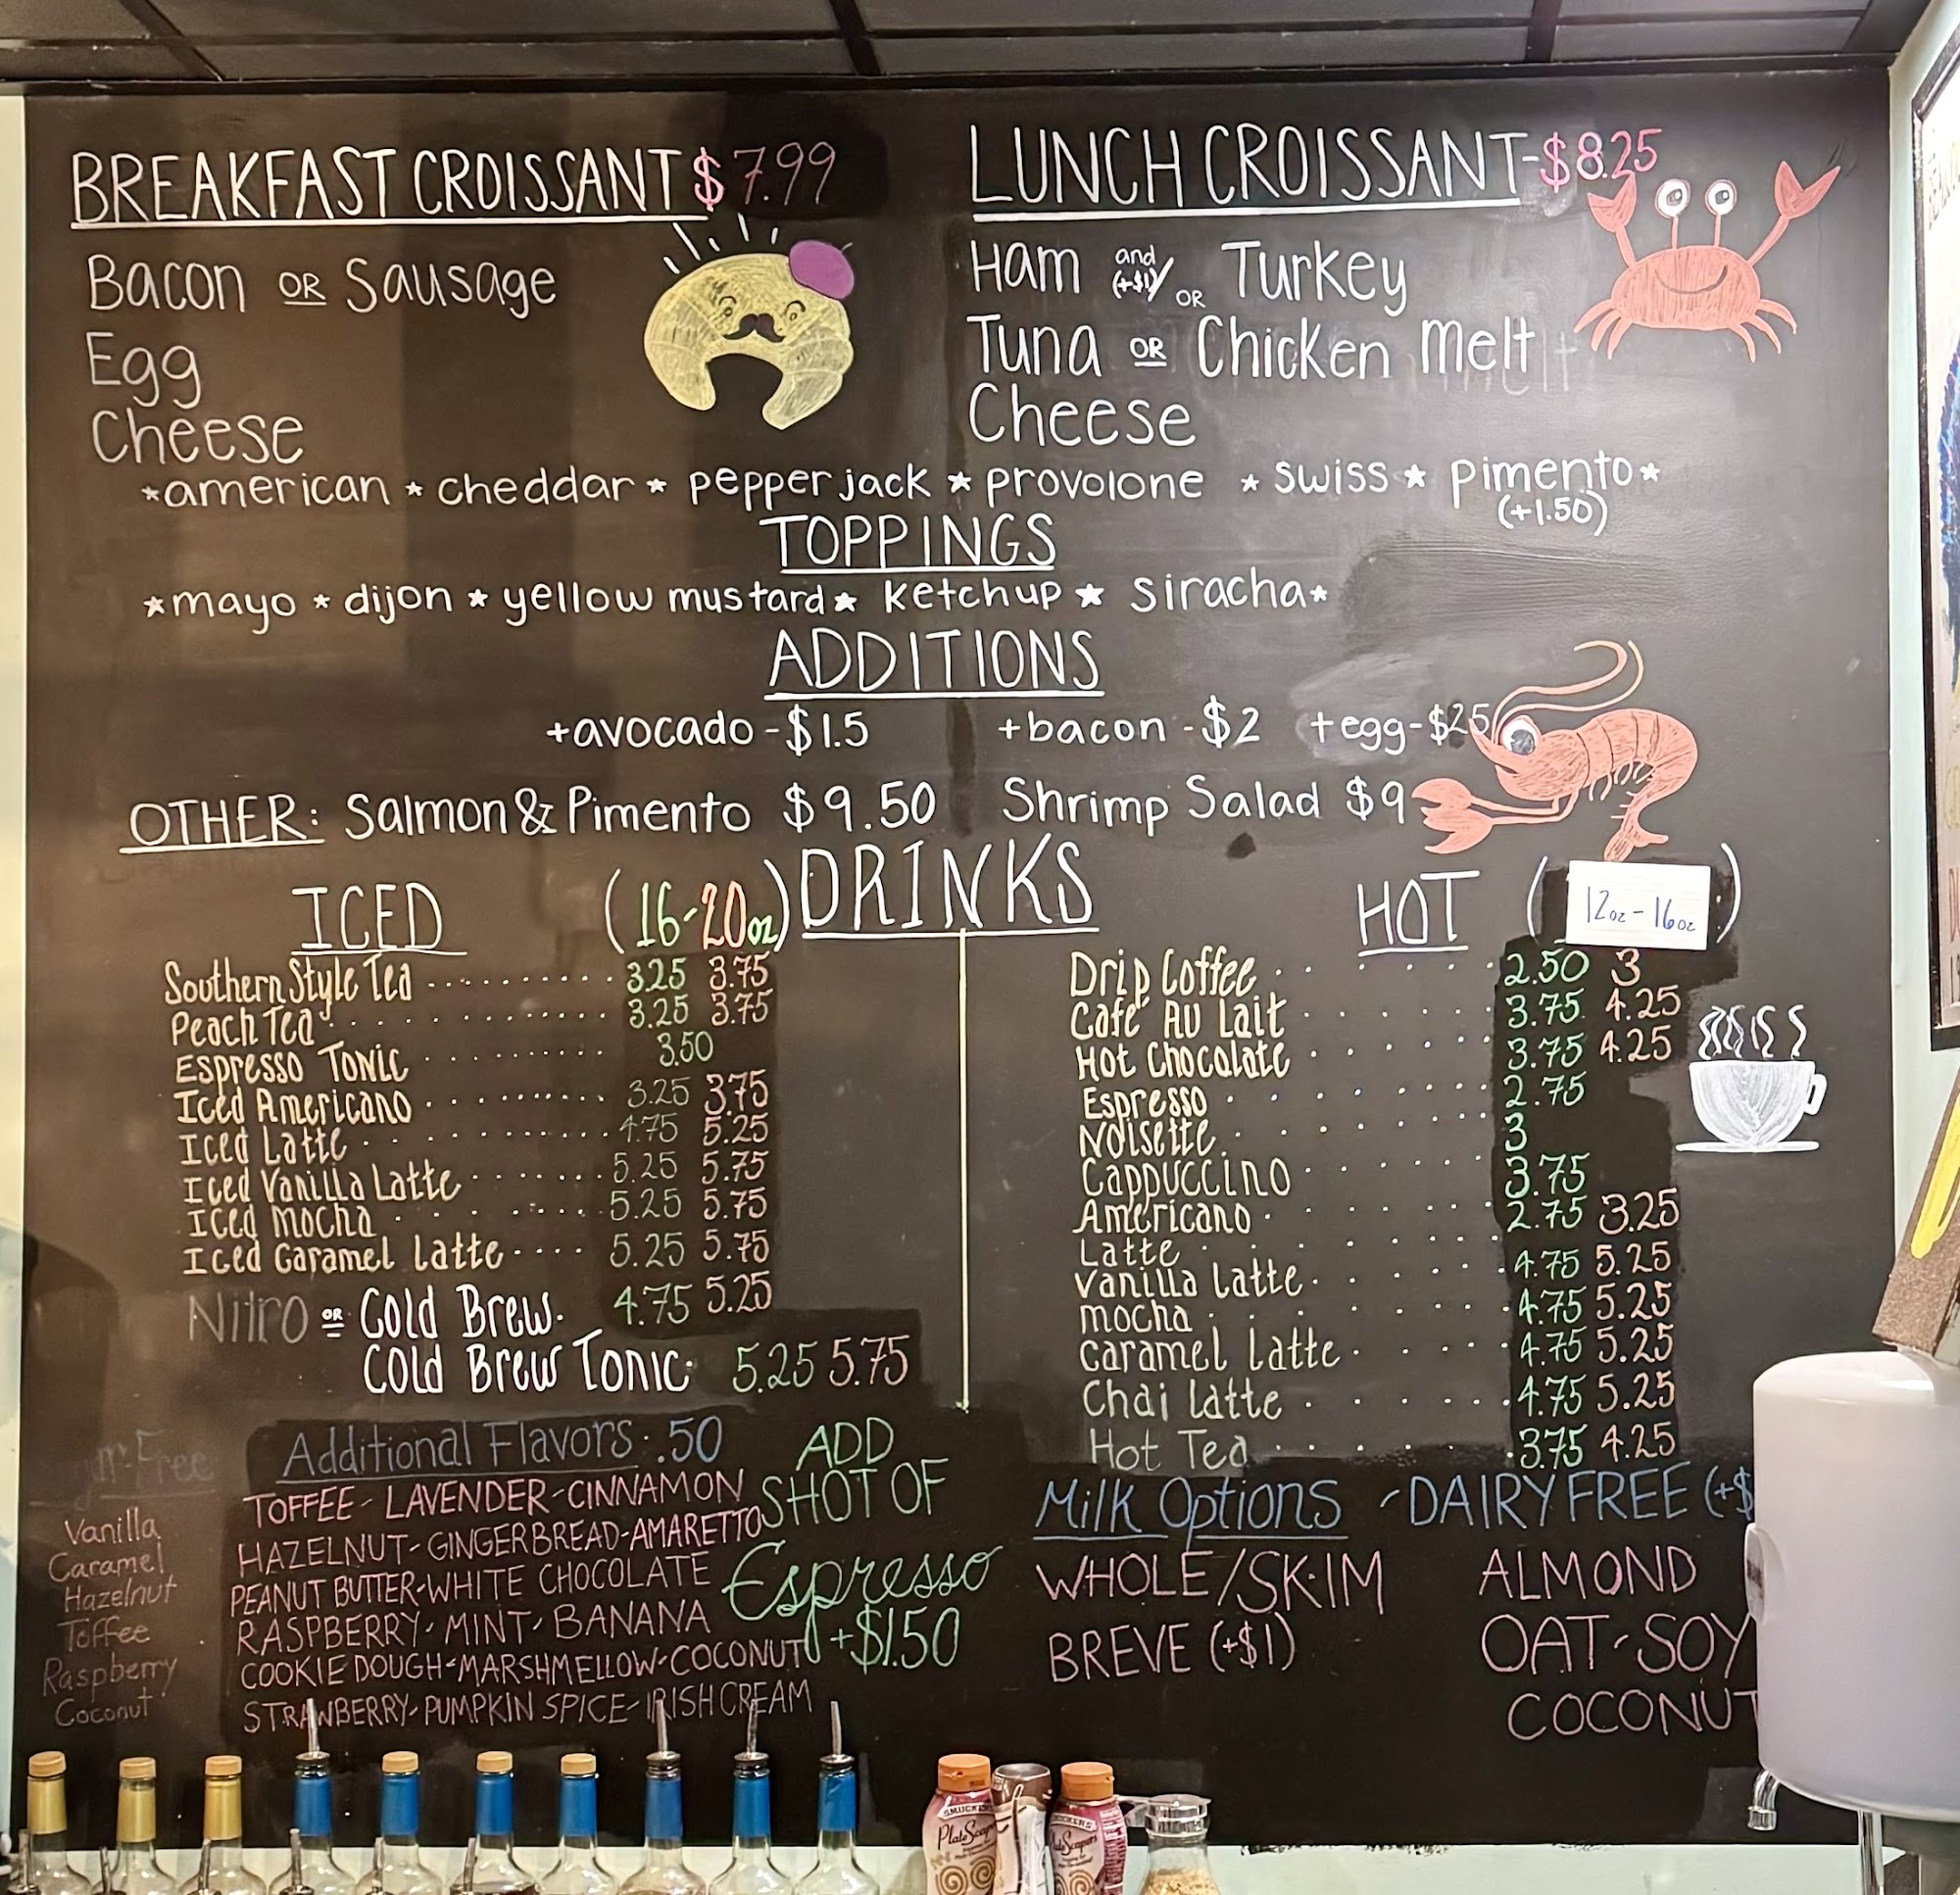 BREAKFAST CROISSANT $7.99
Bacon OR Sausage
Egg
Cheese
LUNCH CROISSANT-$8.25
Ham and (+$1)/OR Turkey
Tuna OR Chicken melt
Cheese
*american * cheddar * pepper jack * provolone * swiss * pimento*
(+1.50)
TOPPINGS
*mayo * dijon * yellow mustard * ketchup * siracha*
ADDITIONS
+avocado-$1.5 +bacon-$2 +egg-$25
OTHER: Salmon & Pimento $9.50 Shrimp Salad $9
DRINKS
ICED (16-20oz)
Southern Style Tea 3.25 3.75
Peach Tea 3.25 3.75
Espresso Tonic 3.50
Iced Americano 3.25 3.75
Iced Latte 4.75 5.25
Iced Vanilla Latte 5.25 5.75
Iced mocha 5.25 5.75
Iced Caramel Latte 5.25 5.75
Nitro OR Cold Brew. 4.75 5.25
Cold Brew Tonic 5.25 5.75
HOT (12oz-16oz)
Drip Coffee 2.50 3
Café Au Lait 3.75 4.25
Hot Chocolate 3.75 4.25
Espresso 2.75
Noisette 3
Cappuccino 3.75
Americano 2.75 3.25
Latte 4.75 5.25
Vanilla Latte 4.75 5.25
mocha 4.75 5.25
Caramel Latte 4.75 5.25
Chai Latte
Hot Tea 3.75 4.25
Free
Vanilla
Caramel
Hazelnut
Toffee
Raspberry
Coconut
Additional Flavors: .50
TOFFEE-LAVENDER-CINNAMON
HAZELNUT-GINGERBREAD-AMARETTO
PEANUT BUTTER-WHITE CHOCOLATE
RASPBERRY-MINT-BANANA
COOKIE DOUGH-MARSHMELLOW-COCONUT
STRAWBERRY-PUMPKIN SPICE-IRISH CREAM
ADD
SHOT OF
Espresso
+$1.50
Milk Options
WHOLE/SKIM
BREVE (+$1)
-DAIRY FREE (+$
ALMOND
OAT-SOY
COCONUT
SMUCKERS
PlateScapers
SMUCKERS
PlateScapers